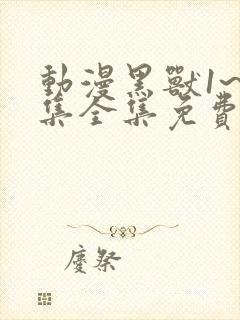 動漫黑獸1~
集全集免費
慶祭